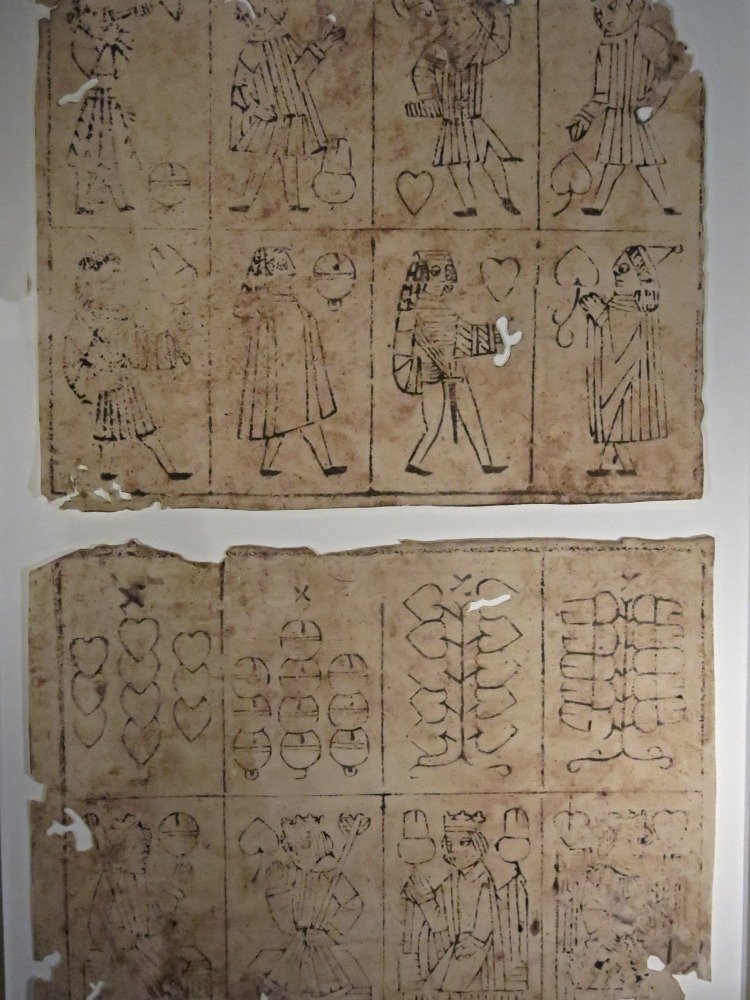 X X X X